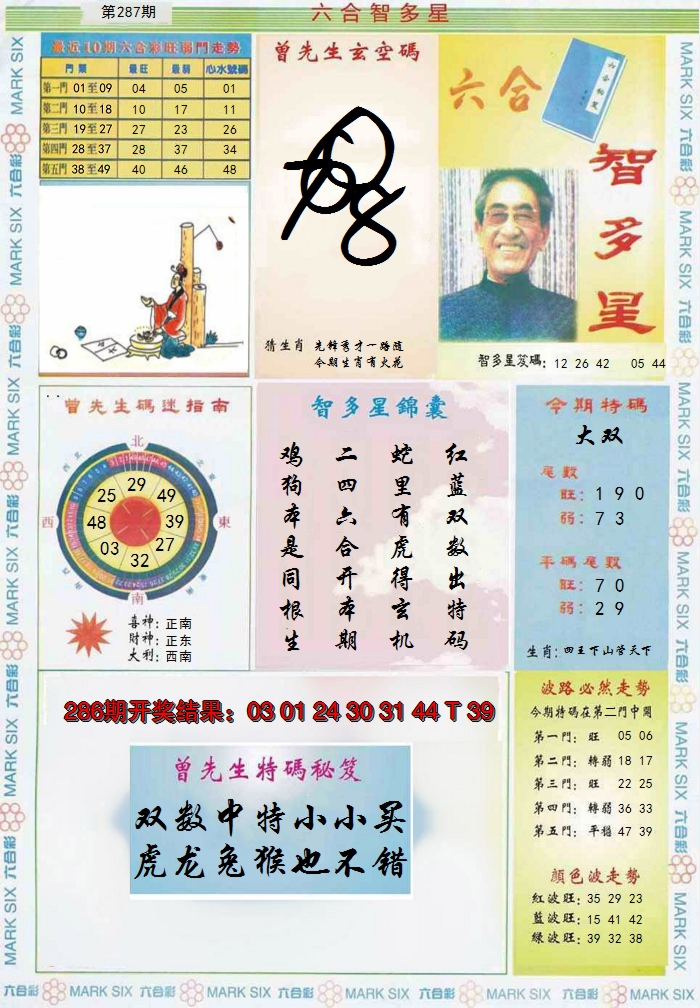 第287期
六合智多星
最近10期六合彩旺弱門走勢
門類 最旺 最弱 心水號碼
第一門 01至09 04 05 01
第二門 10至18 10 17 11
第三門 19至27 27 23 26
第四門 28至37 28 37 34
第五門 38至49 40 46 48
曾先生玄空碼
猜生肖 先鋒秀才一路随
今期生肖有火花
六合
六合秘笈
智多星
智多星笈碼: 12 26 42 05 44
曾先生碼迷指南
北
西
東
南
29
49
39
27
32
03
48
25
喜神: 正南
財神: 正东
大利: 西南
智多星錦囊
红蓝双数出特码
蛇里有虎得玄机
二四六合开本期
鸡狗本是同根生
今期特碼
大双
尾數
旺: 1 9 0
弱: 7 3
平碼尾數
旺: 7 0
弱: 2 9
生肖: 四王下山管天下
286期开奖结果：03 01 24 30 31 44 T 39
曾先生特碼秘笈
双数中特小小买
虎龙兔猴也不错
波路必然走勢
今期特碼在第二門中開
第一門: 旺 05 06
第二門: 轉弱 18 17
第三門: 旺 22 25
第四門: 轉弱 36 33
第五門: 平穩 47 39
顔色波走勢
紅波旺: 35 29 23
藍波旺: 15 41 42
綠波旺: 39 32 38
MARK SIX 六合彩